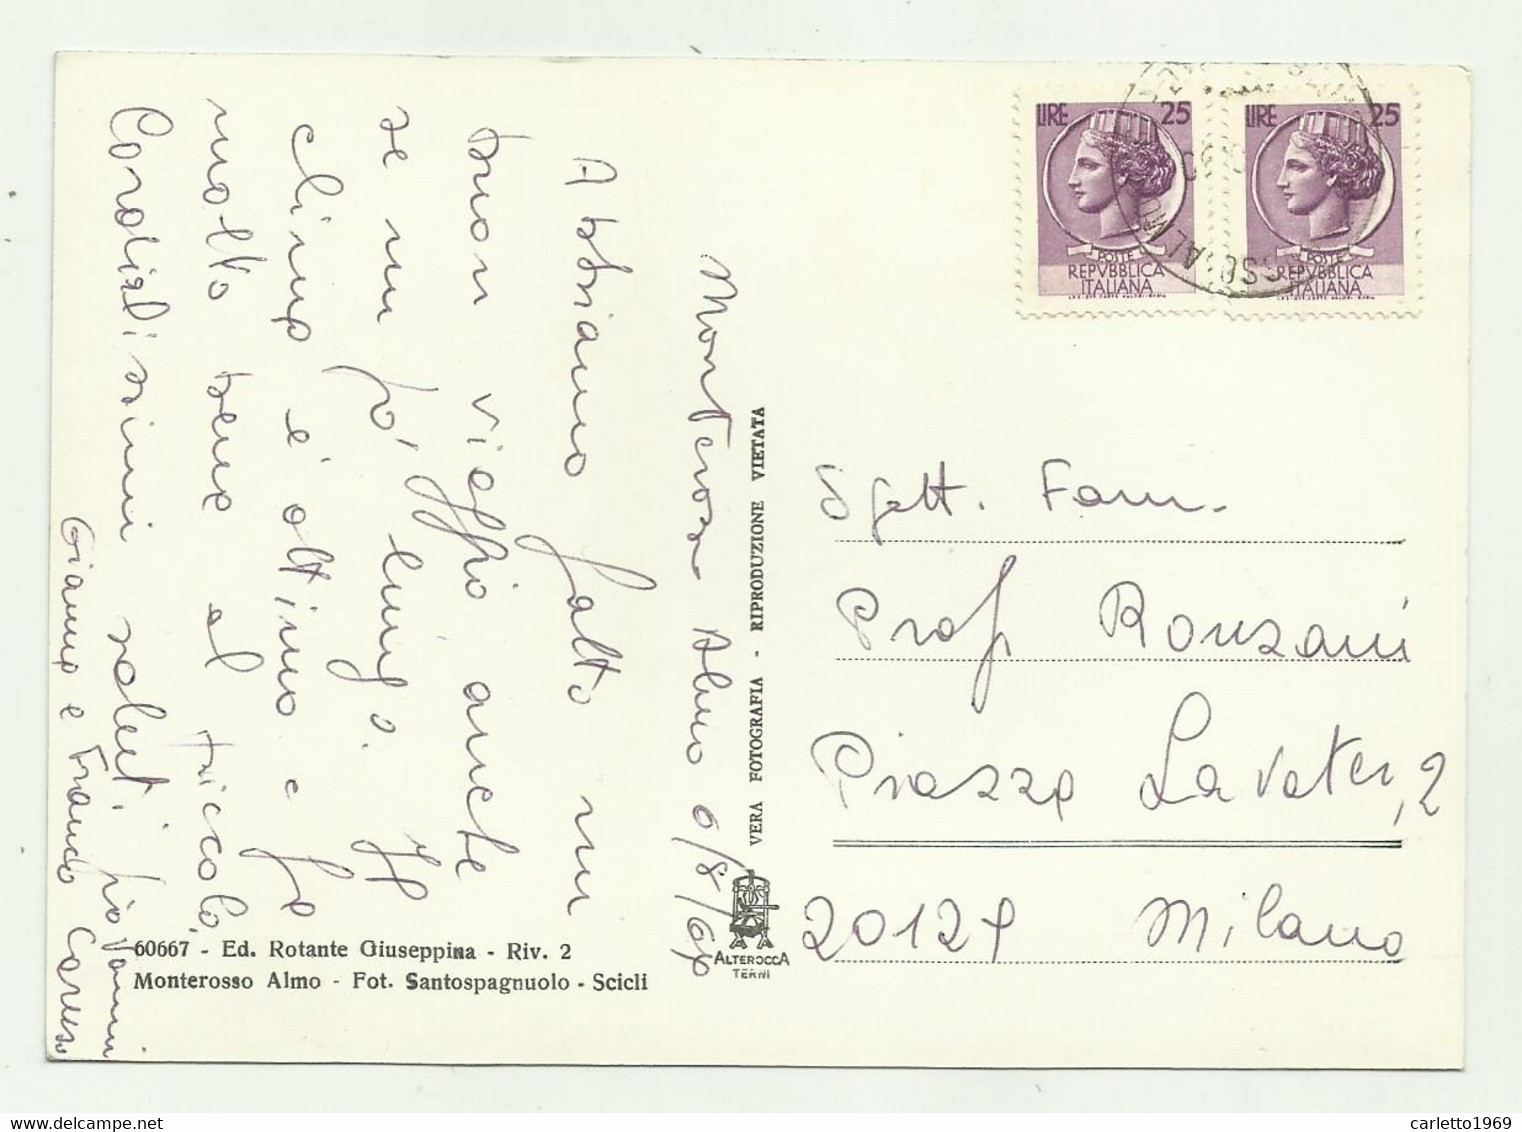 Monterosso Almo 6/8/69
Abbiamo fatto un
buon viaggio anche
se un pó lungo. Il
clima é ottimo e fa
molto bene al piccolo.
Cordialissimi saluti, Giovanni
Gianna e Franco Caruso
60667 - Ed. Rotante Giuseppina - Riv. 2
Monterosso Almo - Fot. Santospagnuolo - Scicli
VERA FOTOGRAFIA - RIPRODUZIONE VIETATA
ALTEROCCA
TERNI
LIRE 25
POSTE
REPVBBLICA
ITALIANA
LIRE 25
POSTE
REPVBBLICA
ITALIANA
Fam.
Prof Ronzani
Piazza Lavater, 2
20129 Milano
carletto1969